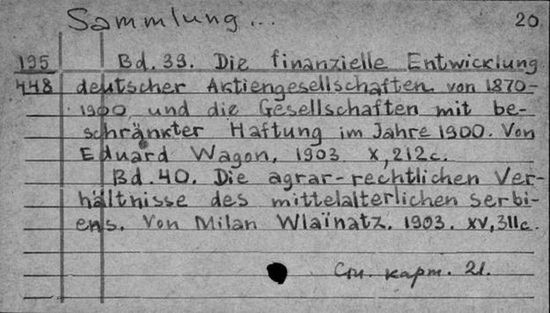 Sammlung... 20.
195 Bd. 39. Die finanzielle Entwicklung
448 deutscher Aktiengesellschaften von 1870-
1900 und die Gesellschaften mit be-
schränkter Haftung im Jahre 1900. Von
Eduard Wagon, 1903 X, 212c.
Bd. 40. Die agrar-rechtlichen Ver-
hältnisse des mittelalterlichen Serbi-
ens. Von Milan Wlaïnatz. 1903. XV, 311c.
См. карт. 21.